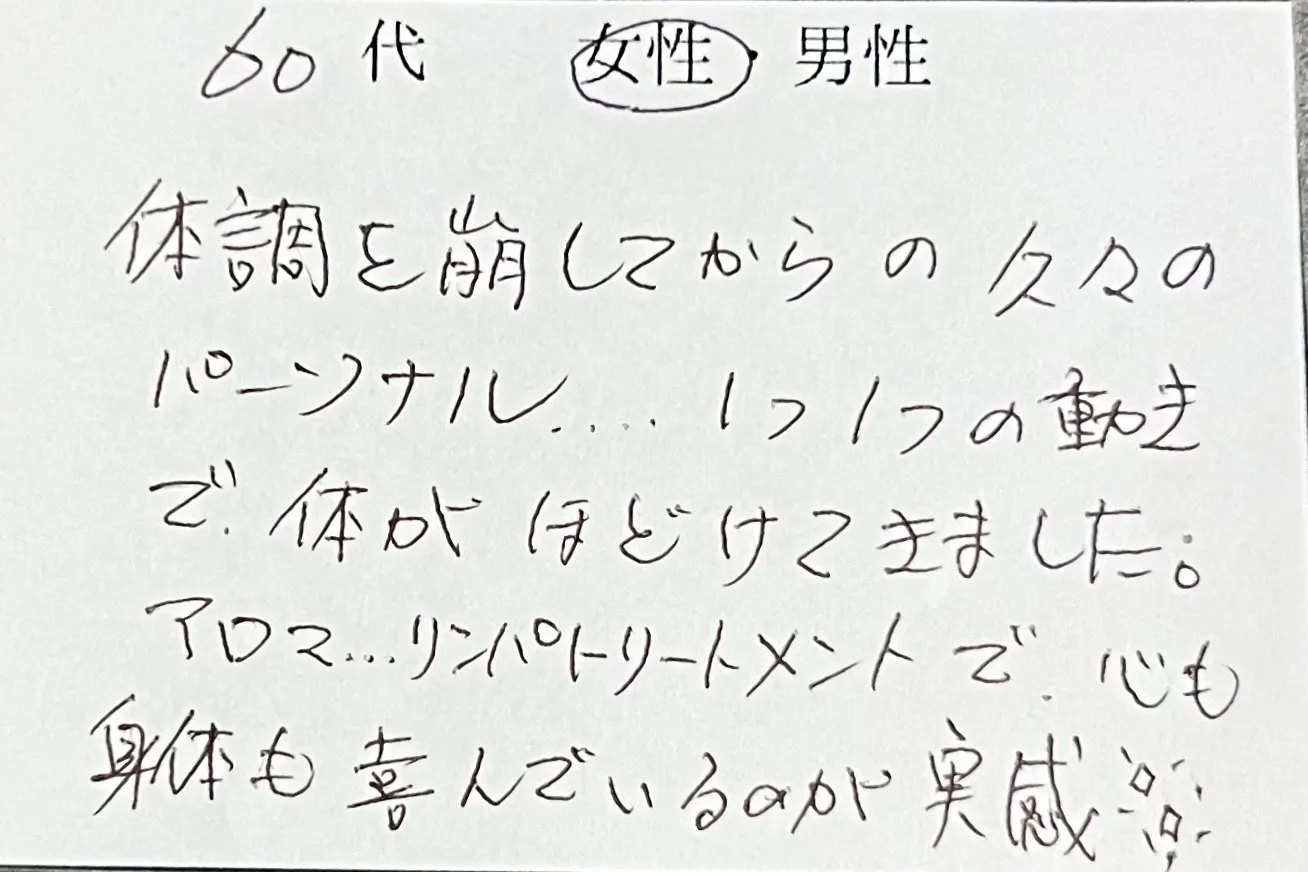 60代 女性・男性
体調を崩してからの久々の
パーソナル....1つ1つの動き
で、体がほどけてきました。
アロマ...リンパトリートメントで、心も
身体も喜んでいるのが実感